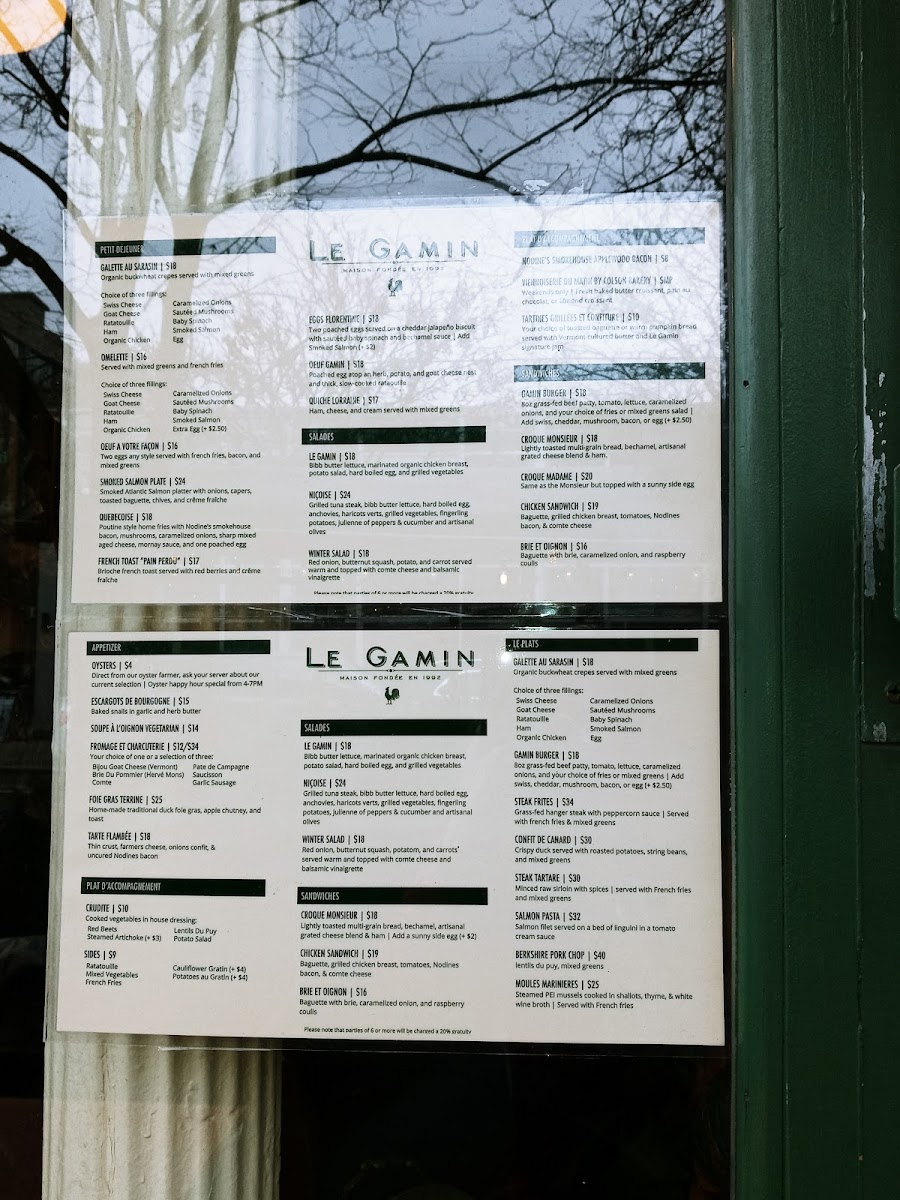 PETIT DEJEUNER
GALETTE AU SARASIN | $18
Organic buckwheat crepes served with mixed greens
Choice of three fillings:
Swiss Cheese Caramelized Onions
Goat Cheese Sautéed Mushrooms
Ratatouille Baby Spinach
Ham Smoked Salmon
Organic Chicken Egg
OMELETTE | $16
Served with mixed greens and french fries
Choice of three fillings:
Swiss Cheese Caramelized Onions
Goat Cheese Sautéed Mushrooms
Ratatouille Baby Spinach
Ham Smoked Salmon
Organic Chicken Extra Egg (+ $2.50)
OEUF A VOTRE FAÇON | $16
Two eggs any style served with french fries, bacon, and
mixed greens
SMOKED SALMON PLATE | $24
Smoked Atlantic Salmon platter with onions, capers,
toasted baguette, chives, and crême fraîche
QUEBECOISE | $18
Poutine style home fries with Nodine's smokehouse
bacon, mushrooms, caramelized onions, sharp mixed
aged cheese, mornay sauce, and one poached egg
FRENCH TOAST "PAIN PERDU" | $17
Brioche french toast served with red berries and crême
fraîche
LE GAMIN
MAISON FONDÉE EN 1992
EGGS FLORENTINE | $18
Two poached eggs served on a cheddar jalapeño biscuit
with sautéed baby spinach and bechamel sauce | Add
Smoked Salmon (+ $2)
OEUF GAMIN | $18
Poached egg atop an herb, potato, and goat cheese nest
and thick, slow-cooked ratatouille
QUICHE LORRAINE | $17
Ham, cheese, and cream served with mixed greens
SALADES
LE GAMIN | $18
Bibb butter lettuce, marinated organic chicken breast,
potato salad, hard boiled egg, and grilled vegetables
NIÇOISE | $24
Grilled tuna steak, bibb butter lettuce, hard boiled egg,
anchovies, haricots verts, grilled vegetables, fingerling
potatoes, julienne of peppers & cucumber and artisanal
olives
WINTER SALAD | $18
Red onion, butternut squash, potato, and carrot served
warm and topped with comte cheese and balsamic
vinaigrette
Please note that parties of 6 or more will be charged a 20% gratuity
PLAT D'ACCOMPAGNEMENT
NODINE'S SMOKEHOUSE APPLEWOOD BACON | $8
VIENNOISERIE DU MATIN BY COLSON BAKERY | $MP
Weekends only | Fresh baked butter croissant, pain au
chocolat, or almond croissant
TARTINES GRILLÉES ET CONFITURE | $10
Your choice of toasted baguette or warm pumpkin bread
served with Vermont cultured butter and Le Gamin
signature jam
SANDWICHES
GAMIN BURGER | $18
8oz grass-fed beef patty, tomato, lettuce, caramelized
onions, and your choice of fries or mixed greens salad |
Add swiss, cheddar, mushroom, bacon, or egg (+ $2.50)
CROQUE MONSIEUR | $18
Lightly toasted multi-grain bread, bechamel, artisanal
grated cheese blend & ham.
CROQUE MADAME | $20
Same as the Monsieur but topped with a sunny side egg
CHICKEN SANDWICH | $19
Baguette, grilled chicken breast, tomatoes, Nodines
bacon, & comte cheese
BRIE ET OIGNON | $16
Baguette with brie, caramelized onion, and raspberry
coulis
APPETIZER
OYSTERS | $4
Direct from our oyster farmer, ask your server about our
current selection | Oyster happy hour special from 4-7PM
ESCARGOTS DE BOURGOGNE | $15
Baked snails in garlic and herb butter
SOUPE À L'OIGNON VEGETARIAN | $14
FROMAGE ET CHARCUTERIE | $12/$34
Your choice of one or a selection of three:
Bijou Goat Cheese (Vermont) Pate de Campagne
Brie Du Pommier (Hervé Mons) Saucisson
Comte Garlic Sausage
FOIE GRAS TERRINE | $25
Home-made traditional duck foie gras, apple chutney, and
toast
TARTE FLAMBÉE | $18
Thin crust, farmers cheese, onions confit, &
uncured Nodines bacon
PLAT D'ACCOMPAGNEMENT
CRUDITE | $10
Cooked vegetables in house dressing:
Red Beets Lentils Du Puy
Steamed Artichoke (+ $3) Potato Salad
SIDES | $9
Ratatouille Cauliflower Gratin (+ $4)
Mixed Vegetables Potatoes au Gratin (+ $4)
French Fries
LE GAMIN
MAISON FONDÉE EN 1992
SALADES
LE GAMIN | $18
Bibb butter lettuce, marinated organic chicken breast,
potato salad, hard boiled egg, and grilled vegetables
NIÇOISE | $24
Grilled tuna steak, bibb butter lettuce, hard boiled egg,
anchovies, haricots verts, grilled vegetables, fingerling
potatoes, julienne of peppers & cucumber and artisanal
olives
WINTER SALAD | $18
Red onion, butternut squash, potatom, and carrots'
served warm and topped with comte cheese and
balsamic vinaigrette
SANDWICHES
CROQUE MONSIEUR | $18
Lightly toasted multi-grain bread, bechamel, artisanal
grated cheese blend & ham | Add a sunny side egg (+ $2)
CHICKEN SANDWICH | $19
Baguette, grilled chicken breast, tomatoes, Nodines
bacon, & comte cheese
BRIE ET OIGNON | $16
Baguette with brie, caramelized onion, and raspberry
coulis
Please note that parties of 6 or more will be charged a 20% gratuity
LE PLATS
GALETTE AU SARASIN | $18
Organic buckwheat crepes served with mixed greens
Choice of three fillings:
Swiss Cheese Caramelized Onions
Goat Cheese Sautéed Mushrooms
Ratatouille Baby Spinach
Ham Smoked Salmon
Organic Chicken Egg
GAMIN BURGER | $18
8oz grass-fed beef patty, tomato, lettuce, caramelized
onions, and your choice of fries or mixed greens | Add
swiss, cheddar, mushroom, bacon, or egg (+ $2.50)
STEAK FRITES | $34
Grass-fed hanger steak with peppercorn sauce | Served
with french fries & mixed greens
CONFIT DE CANARD | $30
Crispy duck served with roasted potatoes, string beans,
and mixed greens
STEAK TARTARE | $30
Minced raw sirloin with spices | served with French fries
and mixed greens
SALMON PASTA | $32
Salmon filet served on a bed of linguini in a tomato
cream sauce
BERKSHIRE PORK CHOP | $40
lentils du puy, mixed greens
MOULES MARINIERES | $25
Steamed PEI mussels cooked in shallots, thyme, & white
wine broth | Served with French fries